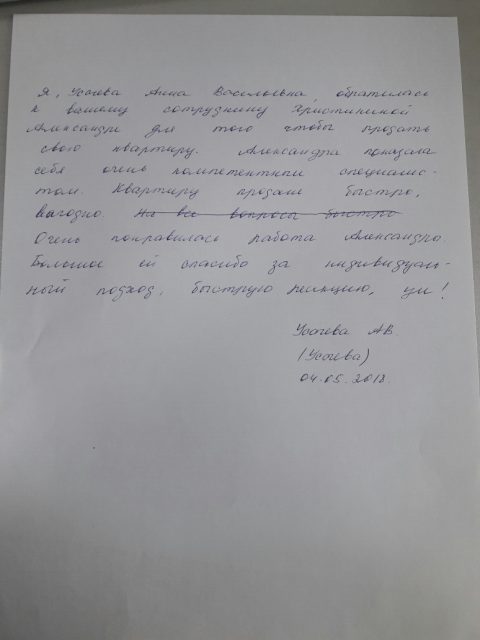 Я, Усачева Анна Васильевна, обратилась
к вашему сотруднику Христининой
Александре для того чтобы продать
свою квартиру. Александра показала
себя очень компетентным специалис-
том. Квартиру продали быстро,
выгодно. На все вопросы быстро
Очень понравилась работа Александры.
Большое ей спасибо за индивидуаль-
ный подход, быструю реакцию,
Усачева АВ.
(Усачева)
04.05.2018.